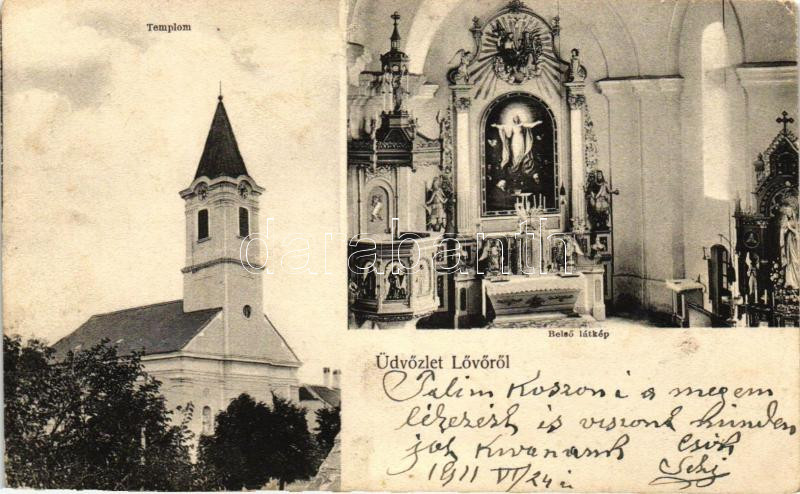 Templom
Belső látkép
Üdvőzlet Lővőről
Palim Koszoni a megem
lékezést is viszont minden
jót Kivanunk Csók
1911 VI/24 i
darabanth